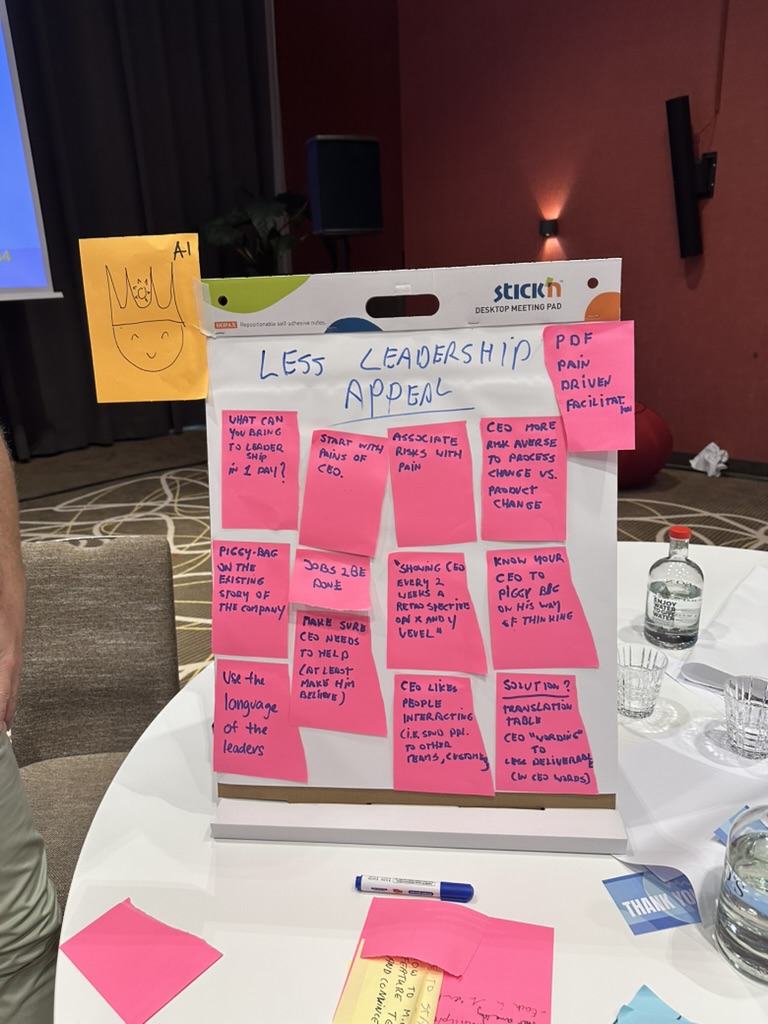 A-1
STICK'N
DESKTOP MEETING PAD
HOPAX Repositionable self-adhesive notes.
LESS LEADERSHIP
APPEAL
PDF
PAIN
DRIVEN
FACILITATION
WHAT CAN
YOU BRING
TO LEADER
SHIP
IN 1 DAY?
START WITH
PAINS OF
CEO.
ASSOCIATE
RISKS WITH
PAIN
CEO MORE
RISK AVERSE
TO PROCESS
CHANGE VS.
PRODUCT
CHANGE
PIGGY-BAG
ON THE
EXISTING
STORY OF
THE COMPANY
JOBS 2BE
DONE
"SHOWING CEO
EVERY 2
WEEKS A
RETROSPECTIVE
ON X AND Y
LEVEL"
KNOW YOUR
CEO TO
PIGGY BAG
ON HIS WAY
OF THINKING
MAKE SURE
CEO NEEDS
TO HELP
(AT LEAST
MAKE HIM
BELIEVE)
Use the
language
of the
leaders
CEO LIKES
PEOPLE
INTERACTING
(I.E. SEND
TO OTHER
TEAMS, CUSTOMERS)
SOLUTION?
TRANSLATION
TABLE
CEO "WORDING"
TO
LESS DELIVERABLE
(IN CEO WORDS)
ENJOY
WATER
THANK YOU
AND CONVINCE